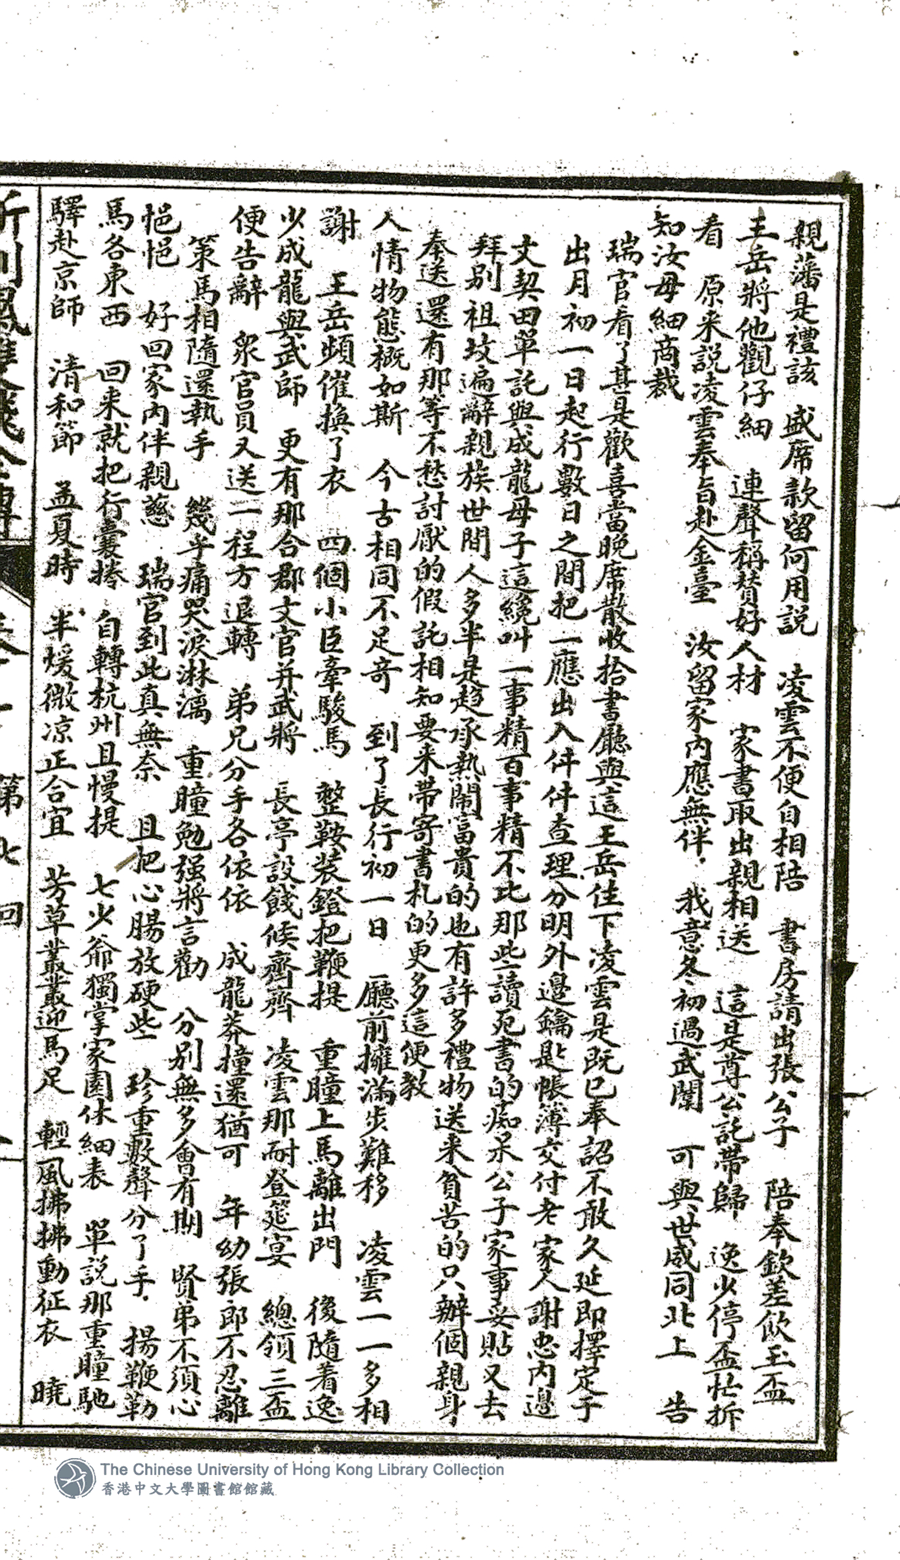 親藩是禮該　盛席款留何用説　凌雲不便自相陪　書房請出張公子　陪奉欽差飲玉盃
王岳將他觀仔細　連聲稱賛好人材　家書取出親相送　這是尊公託帶歸　逸少停盃忙拆
看　原来説凌雲奉旨赴金臺　汝留家内應無伴　我意冬初過武闈　可與世威同北上　告
知汝母細商裁
瑞官看了甚是歡喜當晚席散收拾書廳與這王岳住下凌雲是既已奉詔不敢久延即擇定于
出月初一日起行數日之間把一應出入件件查理分明外邊鑰匙帳薄交付老家人謝忠内邊
文契田單託與成龍母子這纔叫一事精百事精不比那些讀死書的痴呆公子家事妥貼又去
拜别祖坟遍辭親族世間人多半是趋承熱鬧富貴的也有許多禮物送来貧苦的只辦個親身
奉送還有那等不愁討厭的假託相知要来帶寄書札的更多這便教
人情物態概如斯　今古相同不足竒　到了長行初一日　廳前擁滿步難移　凌雲一一多相
謝　王岳頻催換了衣　四個小臣牽駿馬　整鞍裝鐙把鞭提　重瞳上馬離出門　後隨着逸
少成龍與武師　更有那合郡文官并武將　長亭設餞候齊齊　凌雲那耐登筵宴　總領三盃
便告辭　衆官員又送一程方退轉　弟兄分手各依依　成龍莽撞還猶可　年幼張郎不忍離
策馬相隨還執手　幾乎痛哭淚淋漓　重瞳勉强將言勸　分别無多會有期　賢弟不須心
悒悒　好回家内伴親慈　瑞官到此真無奈　且把心腸放硬些　珍重數聲分了手　揚鞭勒
馬各東西　回来就把行囊捲　自轉杭州且慢提　七少爺獨掌家園休細表　單説那重瞳馳
驛赴京師　清和節　孟夏時　半煖微凉正合宜　芳草叢叢迎馬足　輕風拂拂動征衣　曉
第七回
The Chinese University of Hong Kong Library Collection
香港中文大學圖書館館藏